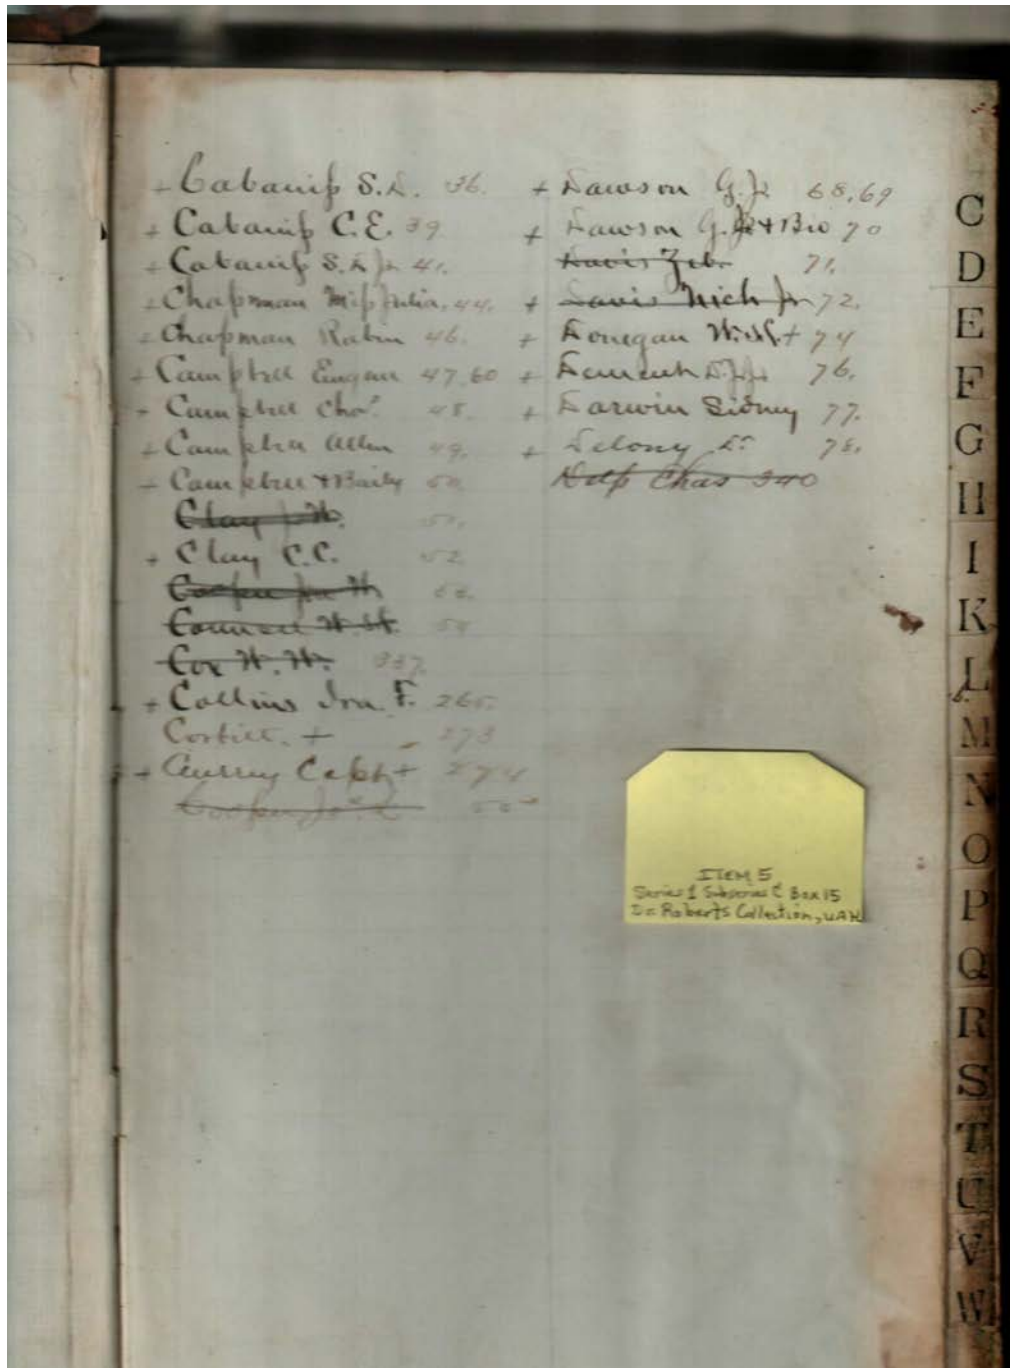 + Cabaniss S. D. 36.
+ Cabaniss C. E. 39
+ Cabaniss S. D Jr 41.
+ Chapman Miss Julia. 44.
+ Chapman Robin 46.
+ Campbell Eugan 47,60
+ Campbell Chas. 48.
+ Campbell Allen 49.
+ Campbell & Baily 50
Clay
+ Clay C.C. 52
Cooper
W. H.
Cox W. W. 337.
+ Collins Ira F. 265.
+ 273
+ Currey Capt + 274
Cooper
+ Dawson G. Jr 68,69
+ Dawson G. Jr & Bro 70
Davis Zeb. 71.
+ Davis Nich Jr 72.
+ Donegan + 74
+ Dement 76.
+ Darwin Sidney 77.
+ Delony Dr 78.
Delp Chas 340
ITEM 5
Series 1 Subseries C Box 15
Dr Roberts Collection, UAH
C
D
E
F
G
H
I
K
L
M
N
O
P
Q
R
S
T
U
V
W